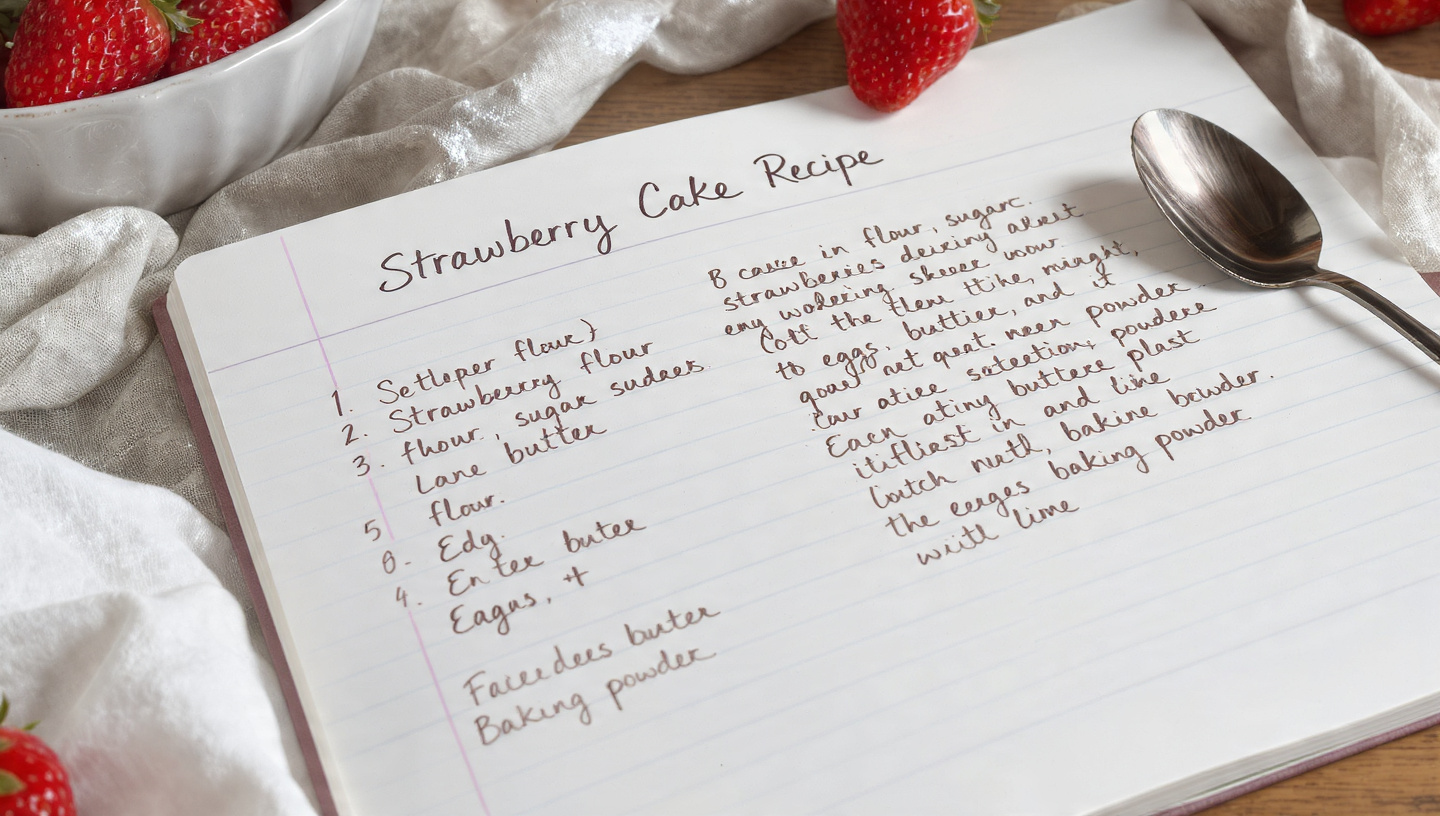 Strawberry Cake Recipe
1. Setloper flour)
2. Strawberry flour
3. flhour, sugar sudees.
Lane butter
5 flour.
8. Edg.
4. En tee buter
Eagas, +
Faceedees buter
Baking powder
B in flour, sugarc.
strawberies deixing
emy skeeer wour
the flem ttihe,
to eggs. buttier, and if
net qeat. neen powder
atiee satestion, poudere
Eacn atiny buttere plast
itifliest in and line
nuth, baking bewder.
the eerges baking powder
witl lime